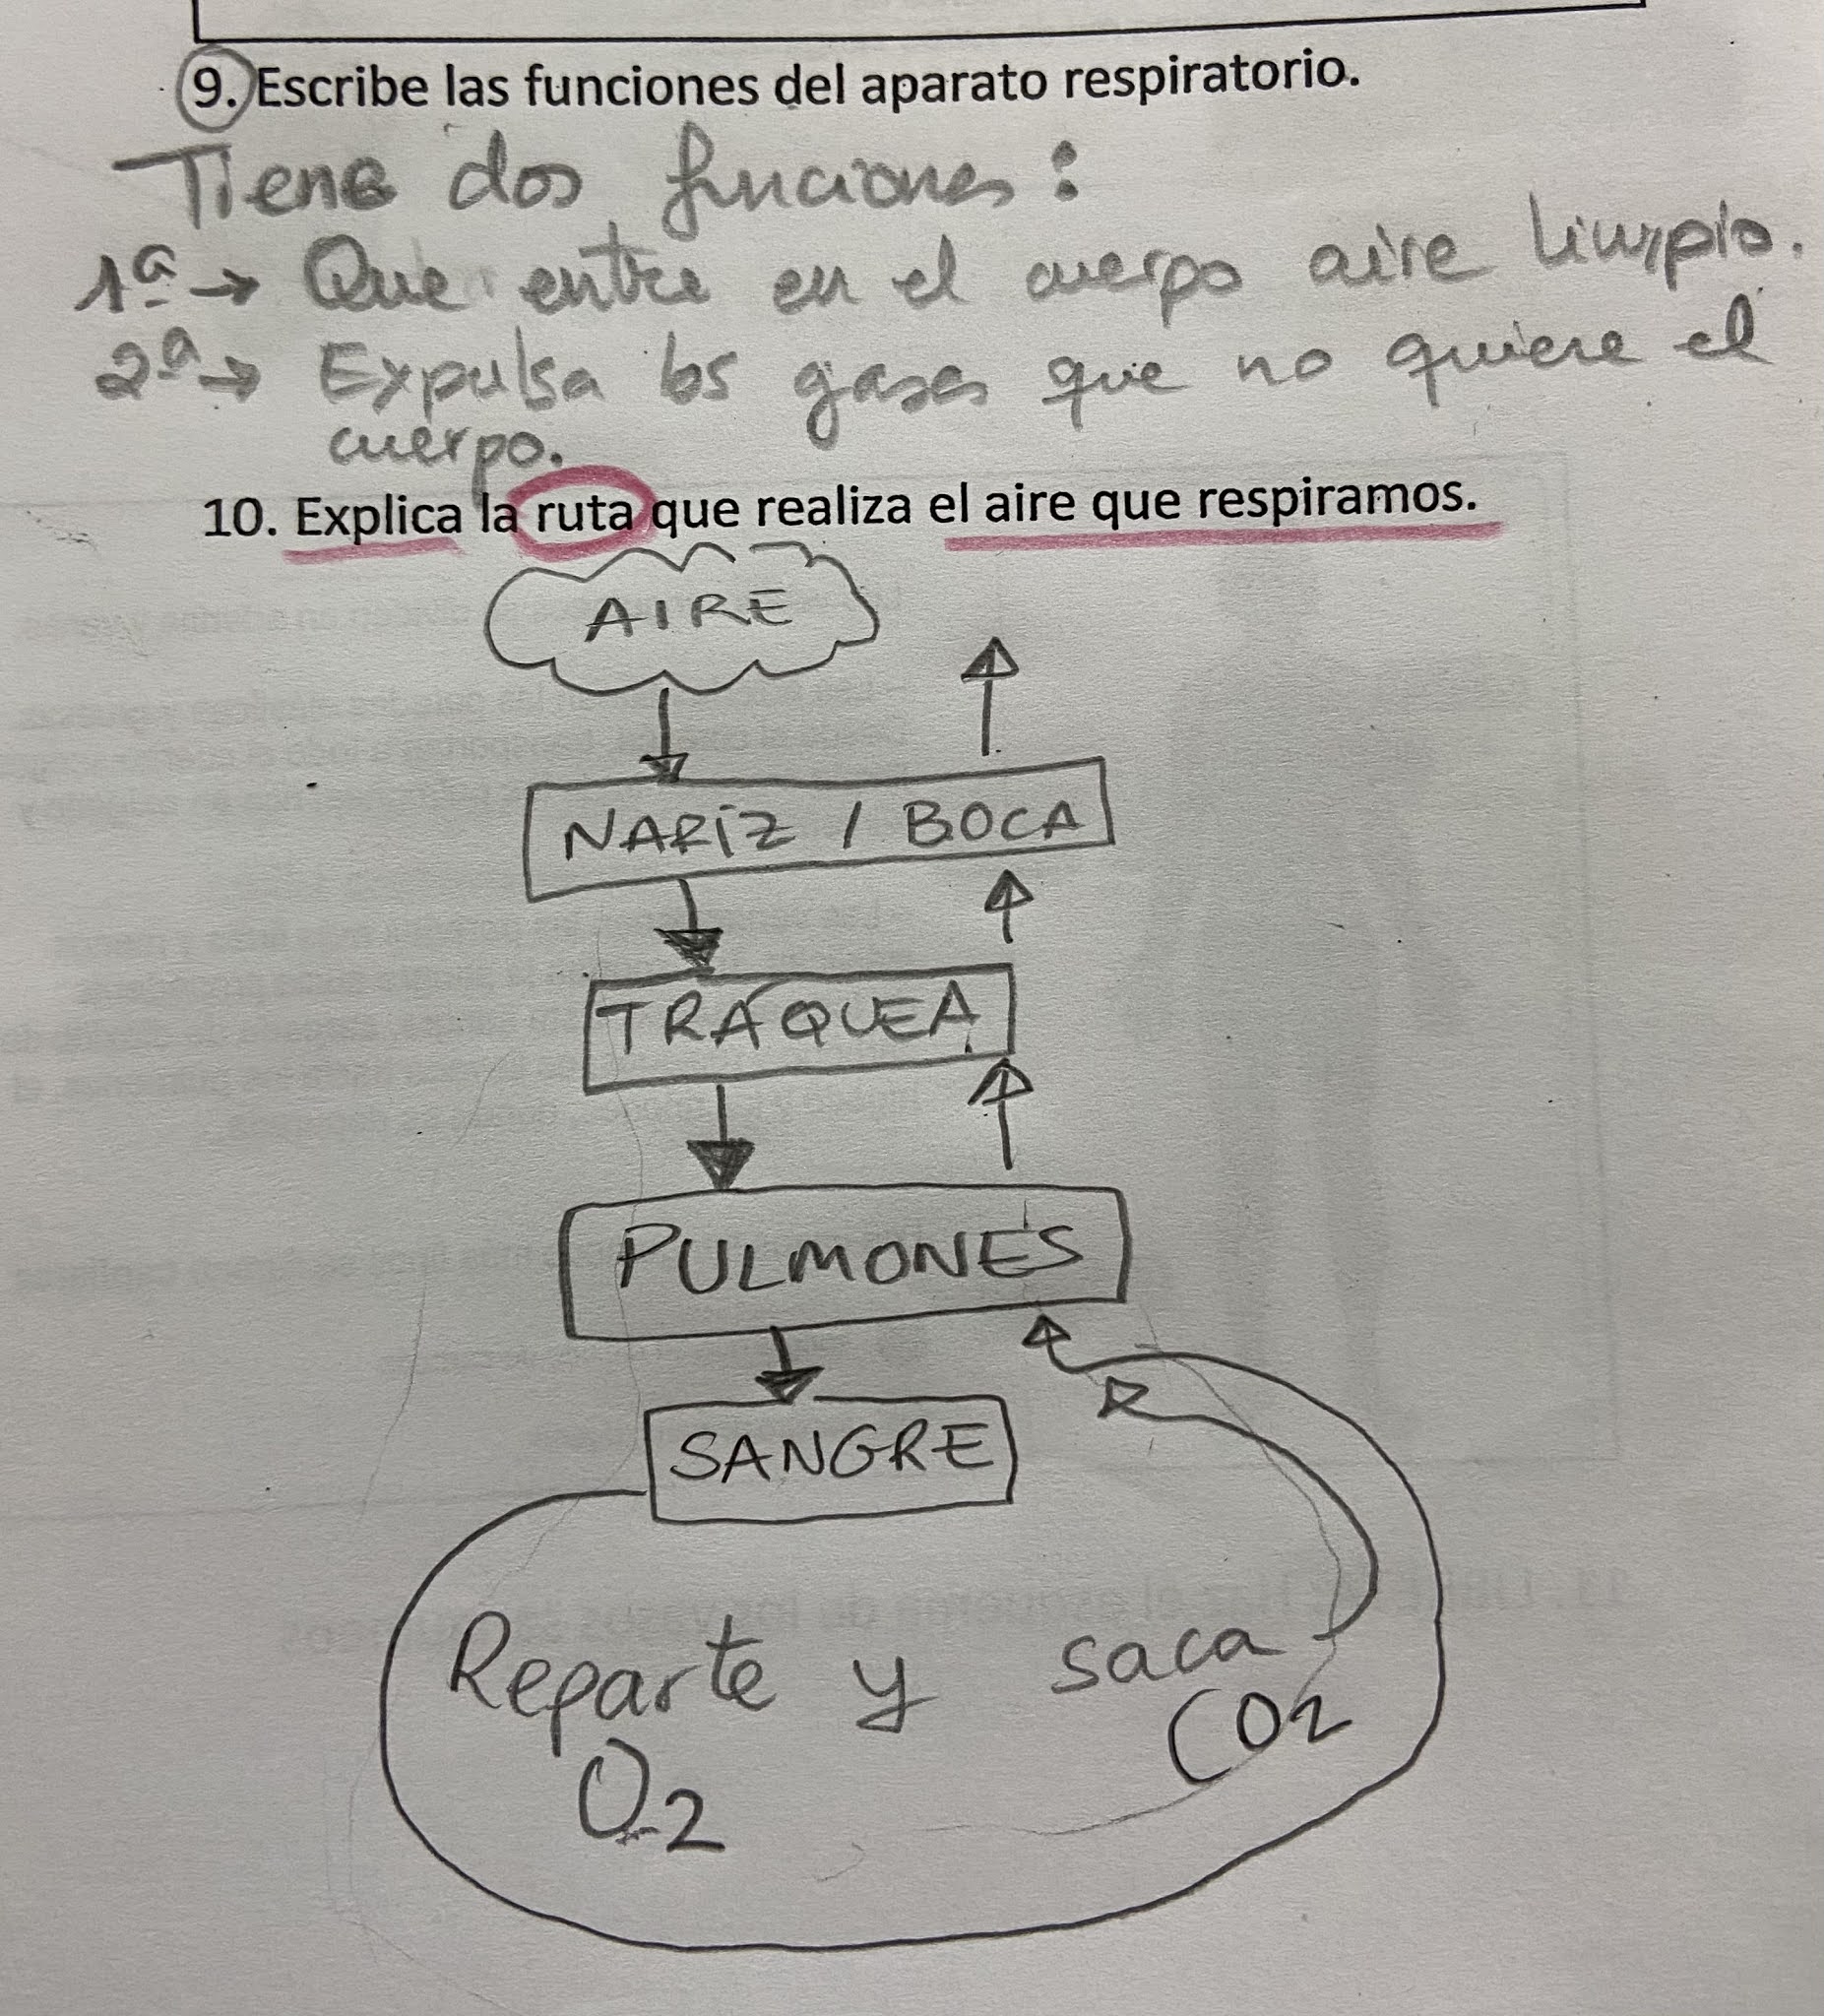 9. Escribe las funciones del aparato respiratorio.
Tiene dos funciones:
1ª → Que entre en el cuerpo aire limpio.
2ª → Expulsa los gases que no quiere el
cuerpo.
10. Explica la ruta que realiza el aire que respiramos.
AIRE
NARIZ / BOCA
TRÁQUEA
PULMONES
SANGRE
Reparte y saca
O2 CO2